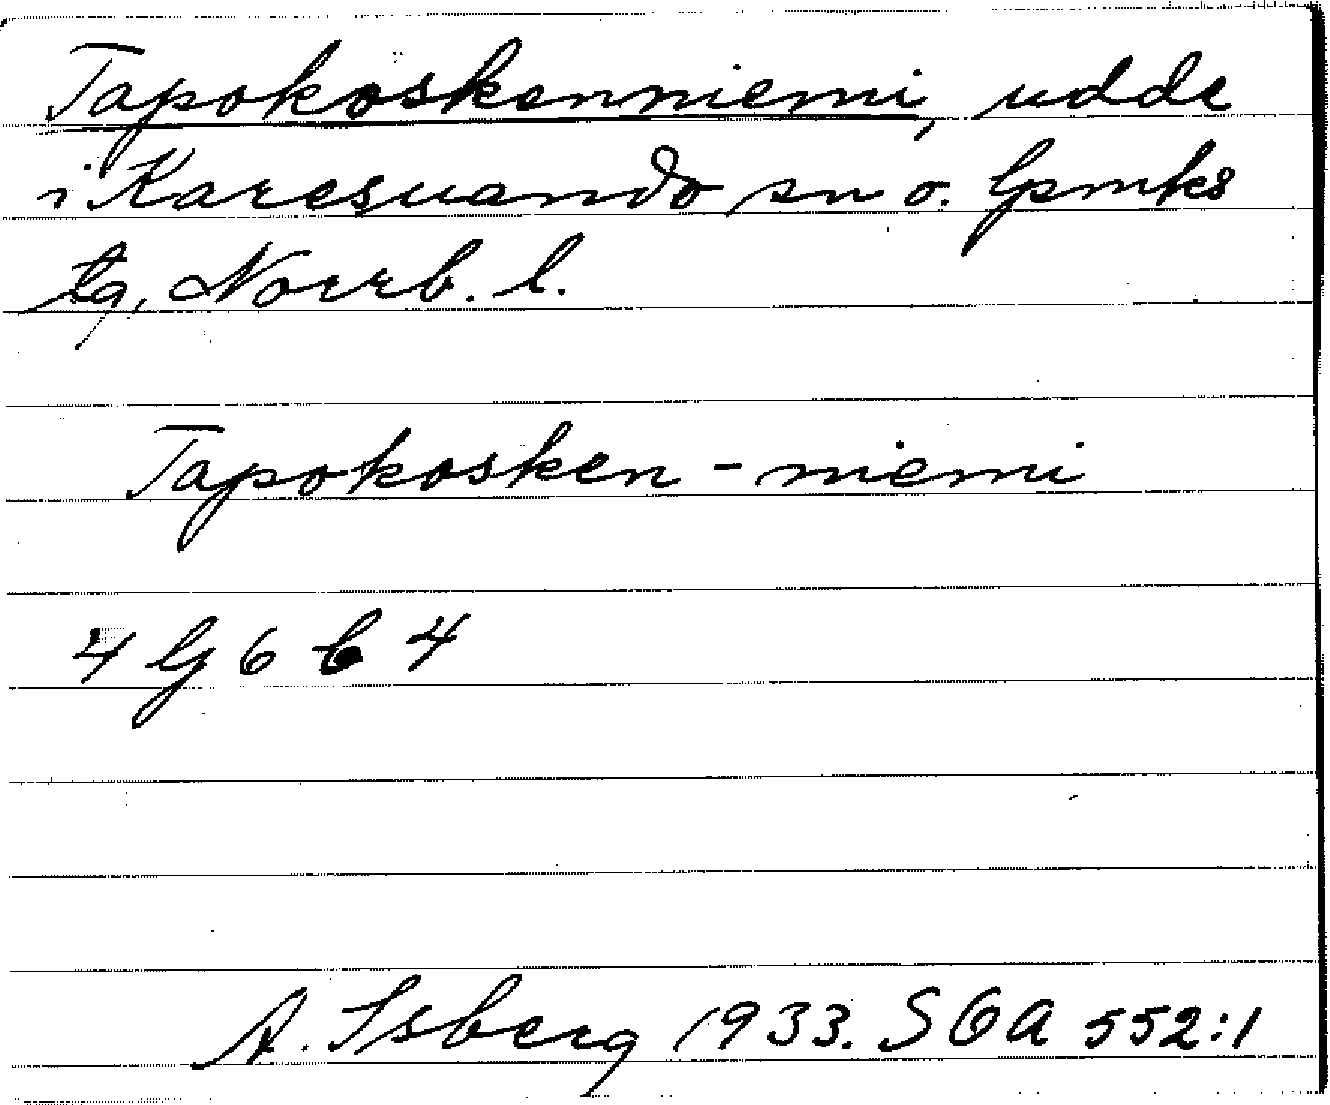 Tapokoskenniemi, udde
i Karesuando sn o. lpmks
tg, Norrb. l.
Tapokosken - niemi
4 G 6 b 4
A. Isberg 1933. SOA 552:1